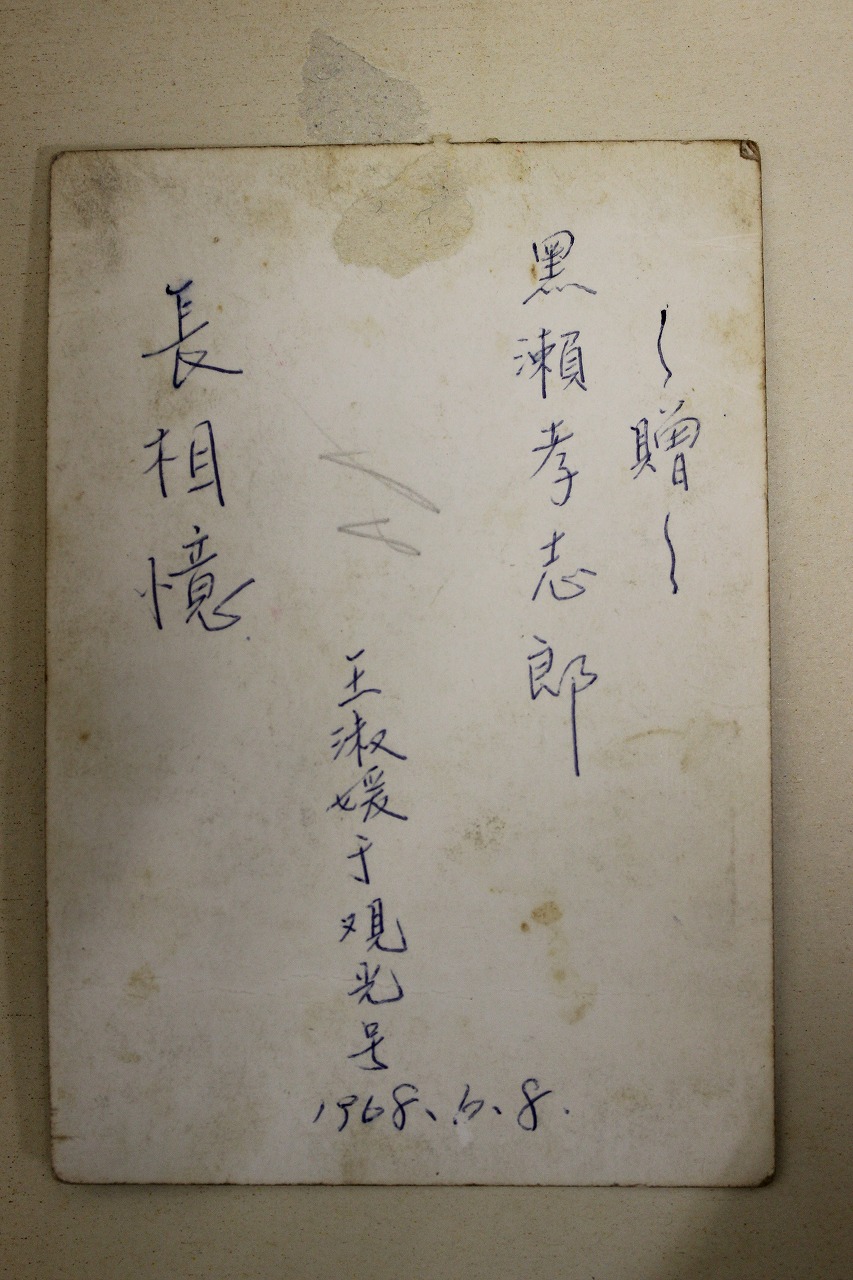 ~贈~
黒瀨孝志郎
王淑媛于观光号
1968、6、8.
長相憶